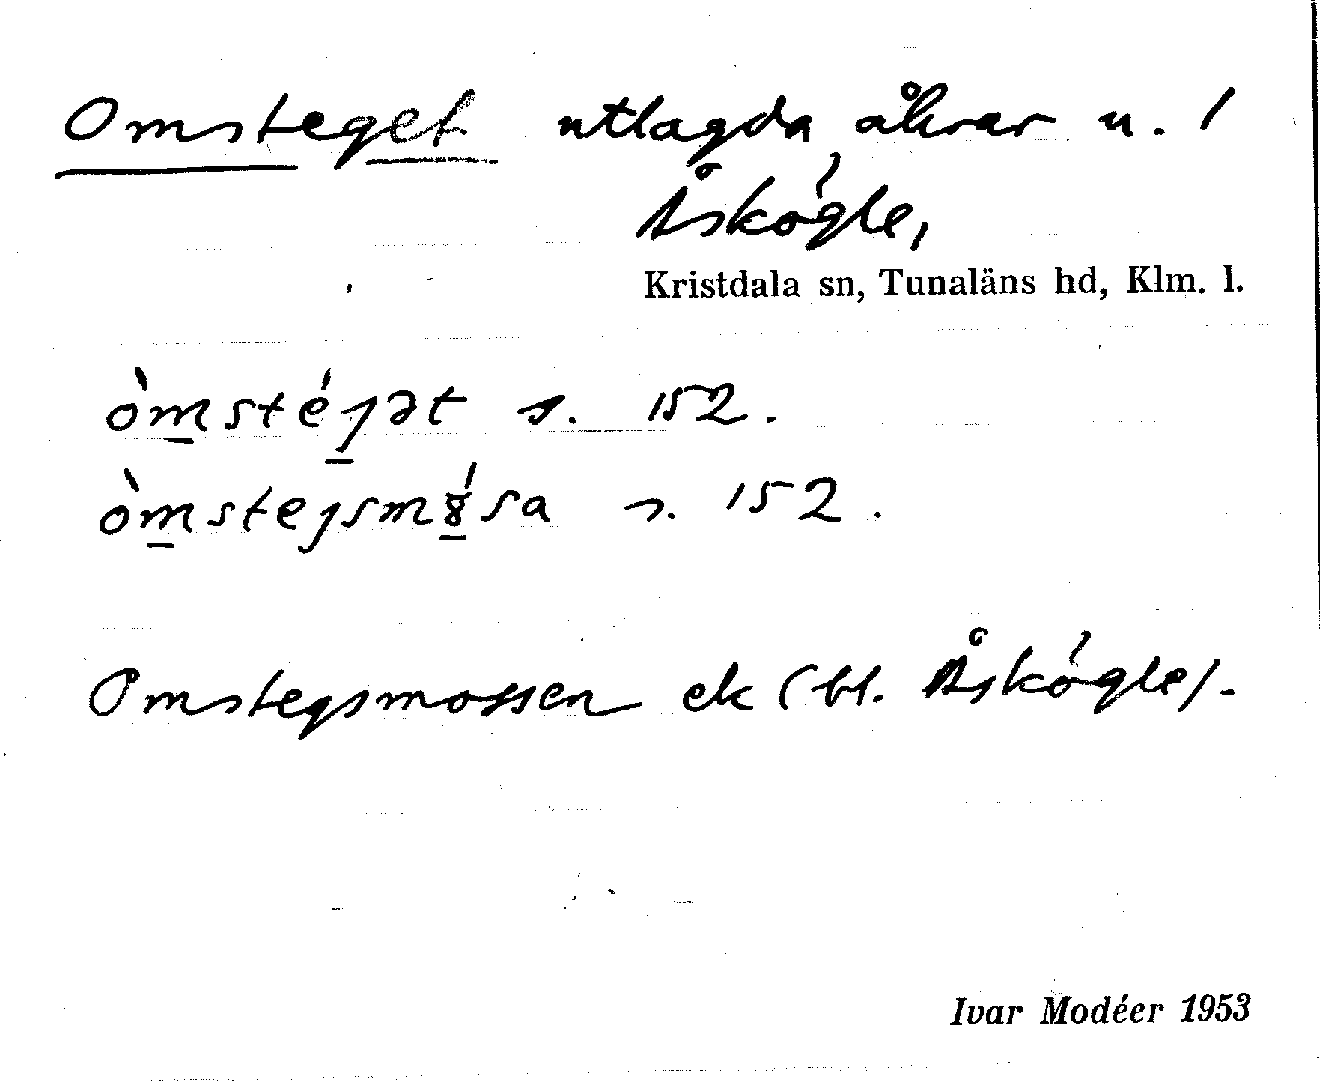 Omsteget utlagda åkrar u. /
Åskögle,
Kristdala sn, Tunaläns hd, Klm. l.
òmstéȷət s. 152.
òmsteȷsmɤ́sa s. 152.
Omstegsmossen ek (bl. Åskögle).
Ivar Modéer 1953